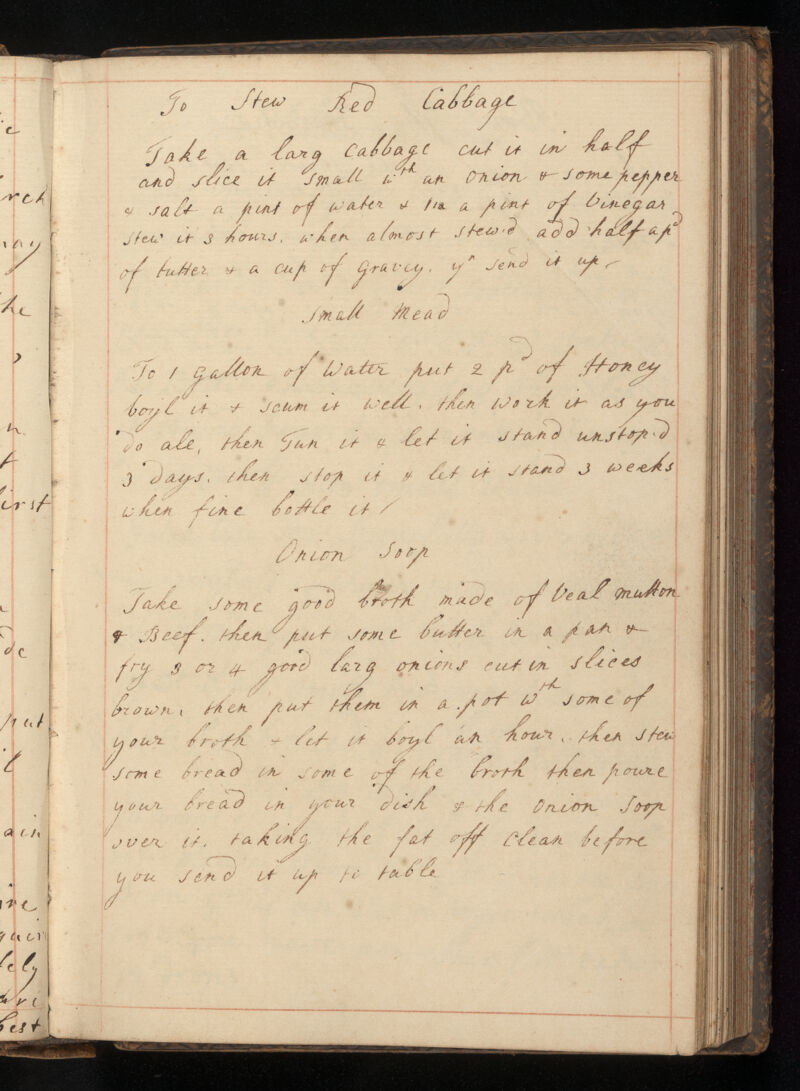 To Stew Red Cabbage
Take a larg Cabbage cut it in half
and slice it small wth an onion & some pepper
& salt a pint of water & a pint of Vinegar
stew it 3 hours. when almost stew'd add half a pd
of butter & a cup of gravey. yn send it up
Small Mead
To 1 gallon of Water put 2 pd of Honey
boyl it & scum it well. then work it as you
do ale, then Tun it & let it stand unstop'd
3 days. then stop it & let it stand 3 weeks
when fine bottle it
Onion Soop
Take some good broth made of Veal mutton
& Beef. then put some butter in a pan &
fry 3 or 4 good larg onions cut in slices
brown, then put them in a pot wth some of
your broth & let it boyl an hour, then stew
some bread in some of the broth then poure
your bread in your dish & the Onion Soop
over it. taking the fat off clean before
you send it up to table
irst
put
ain
best